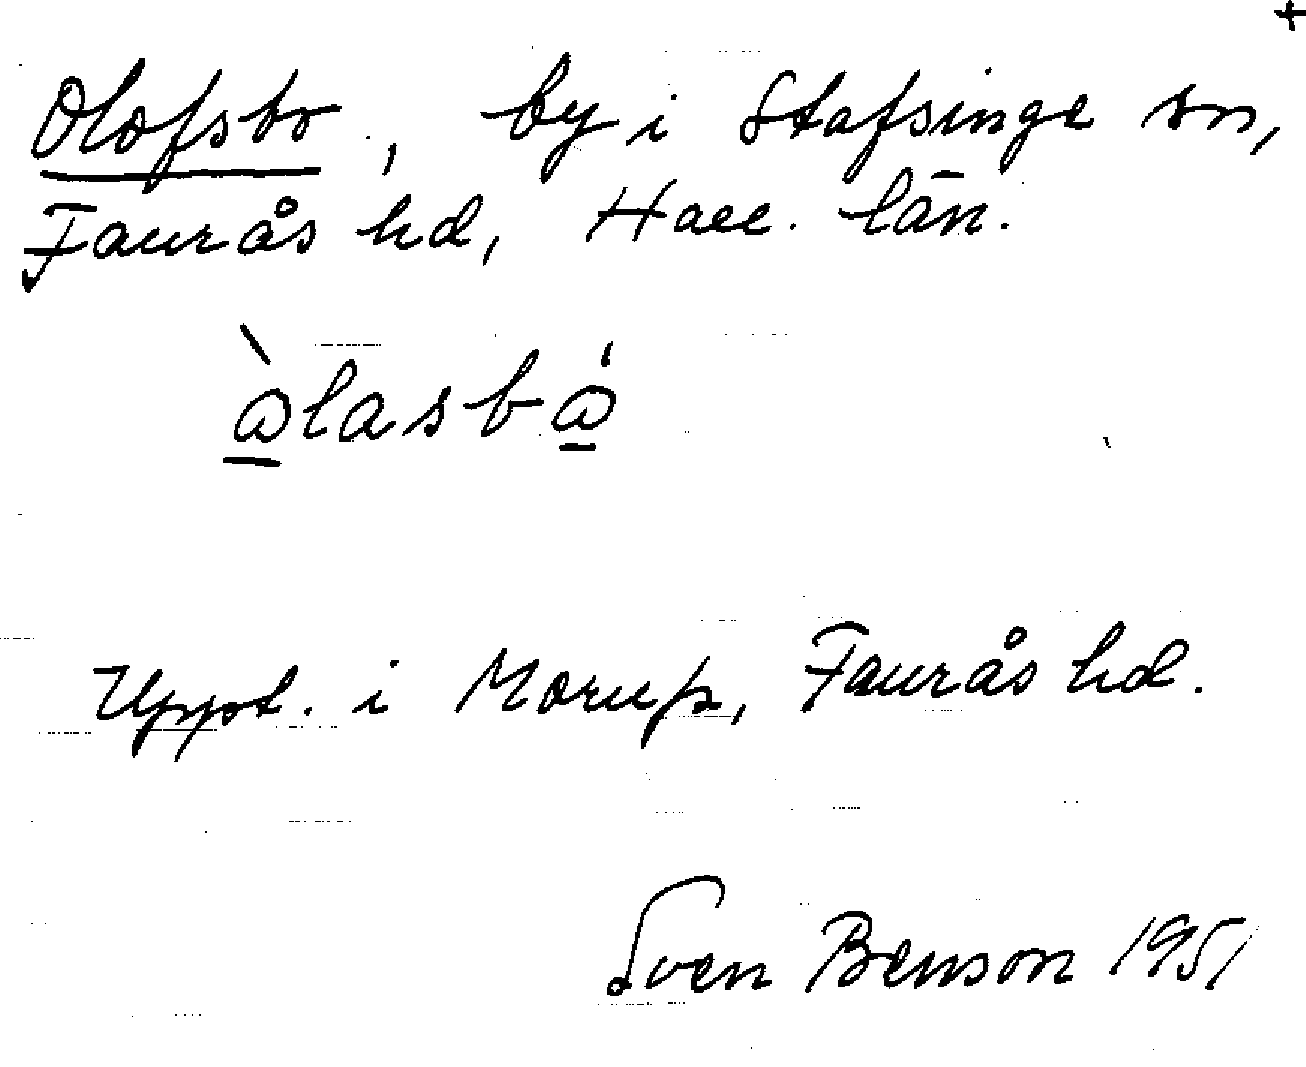 +
Olofsbo, by i Stafsinge sn,
Faurås hd, Hall. län.
Uppt. i Morup, Faurås hd.
Sven Benson 1951